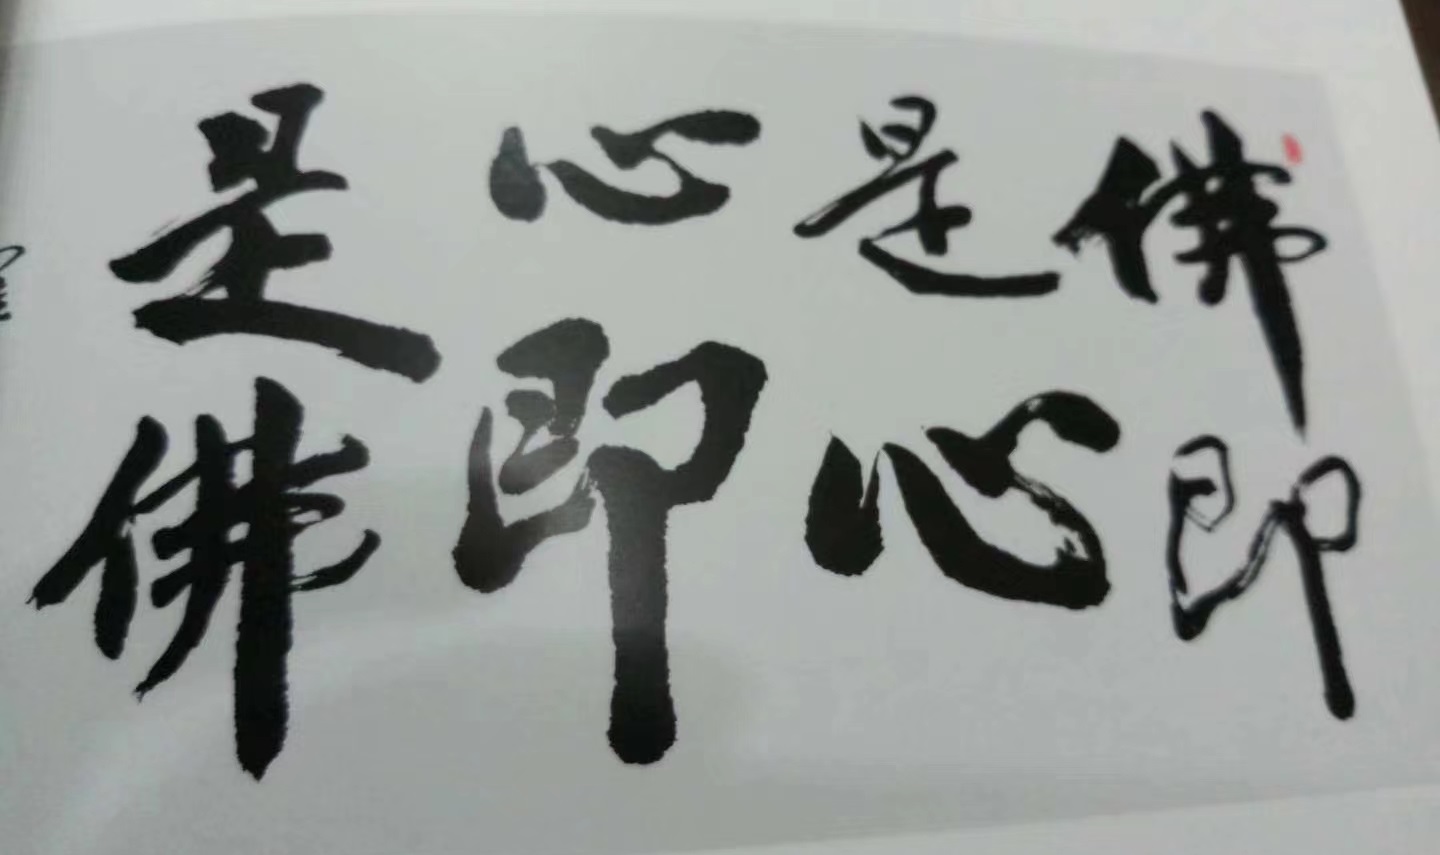 佛即
是心
心即
是佛